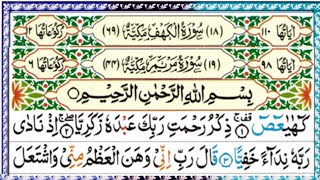 آيَاتُهَا ١١٠ (١٨) سُوْرَةُ الْكَهْفِ مَكِّيَّةٌ (٦٩) رُكُوْعَاتُهَا ١٢
آيَاتُهَا ٩٨ (١٩) سُوْرَةُ مَرْيَمَ مَكِّيَّةٌ (٤٤) رُكُوْعَاتُهَا ٦
بِسْمِ اللّٰهِ الرَّحْمٰنِ الرَّحِيْمِ
كٓهٰيٰعٓصٓ ١ ذِكْرُ رَحْمَتِ رَبِّكَ عَبْدَهٗ زَكَرِيَّا ٢ اِذْ نَادٰى
رَبَّهٗ نِدَآءً خَفِيًّا ٣ قَالَ رَبِّ اِنِّيْ وَهَنَ الْعَظْمُ مِنِّيْ وَاشْتَعَلَ